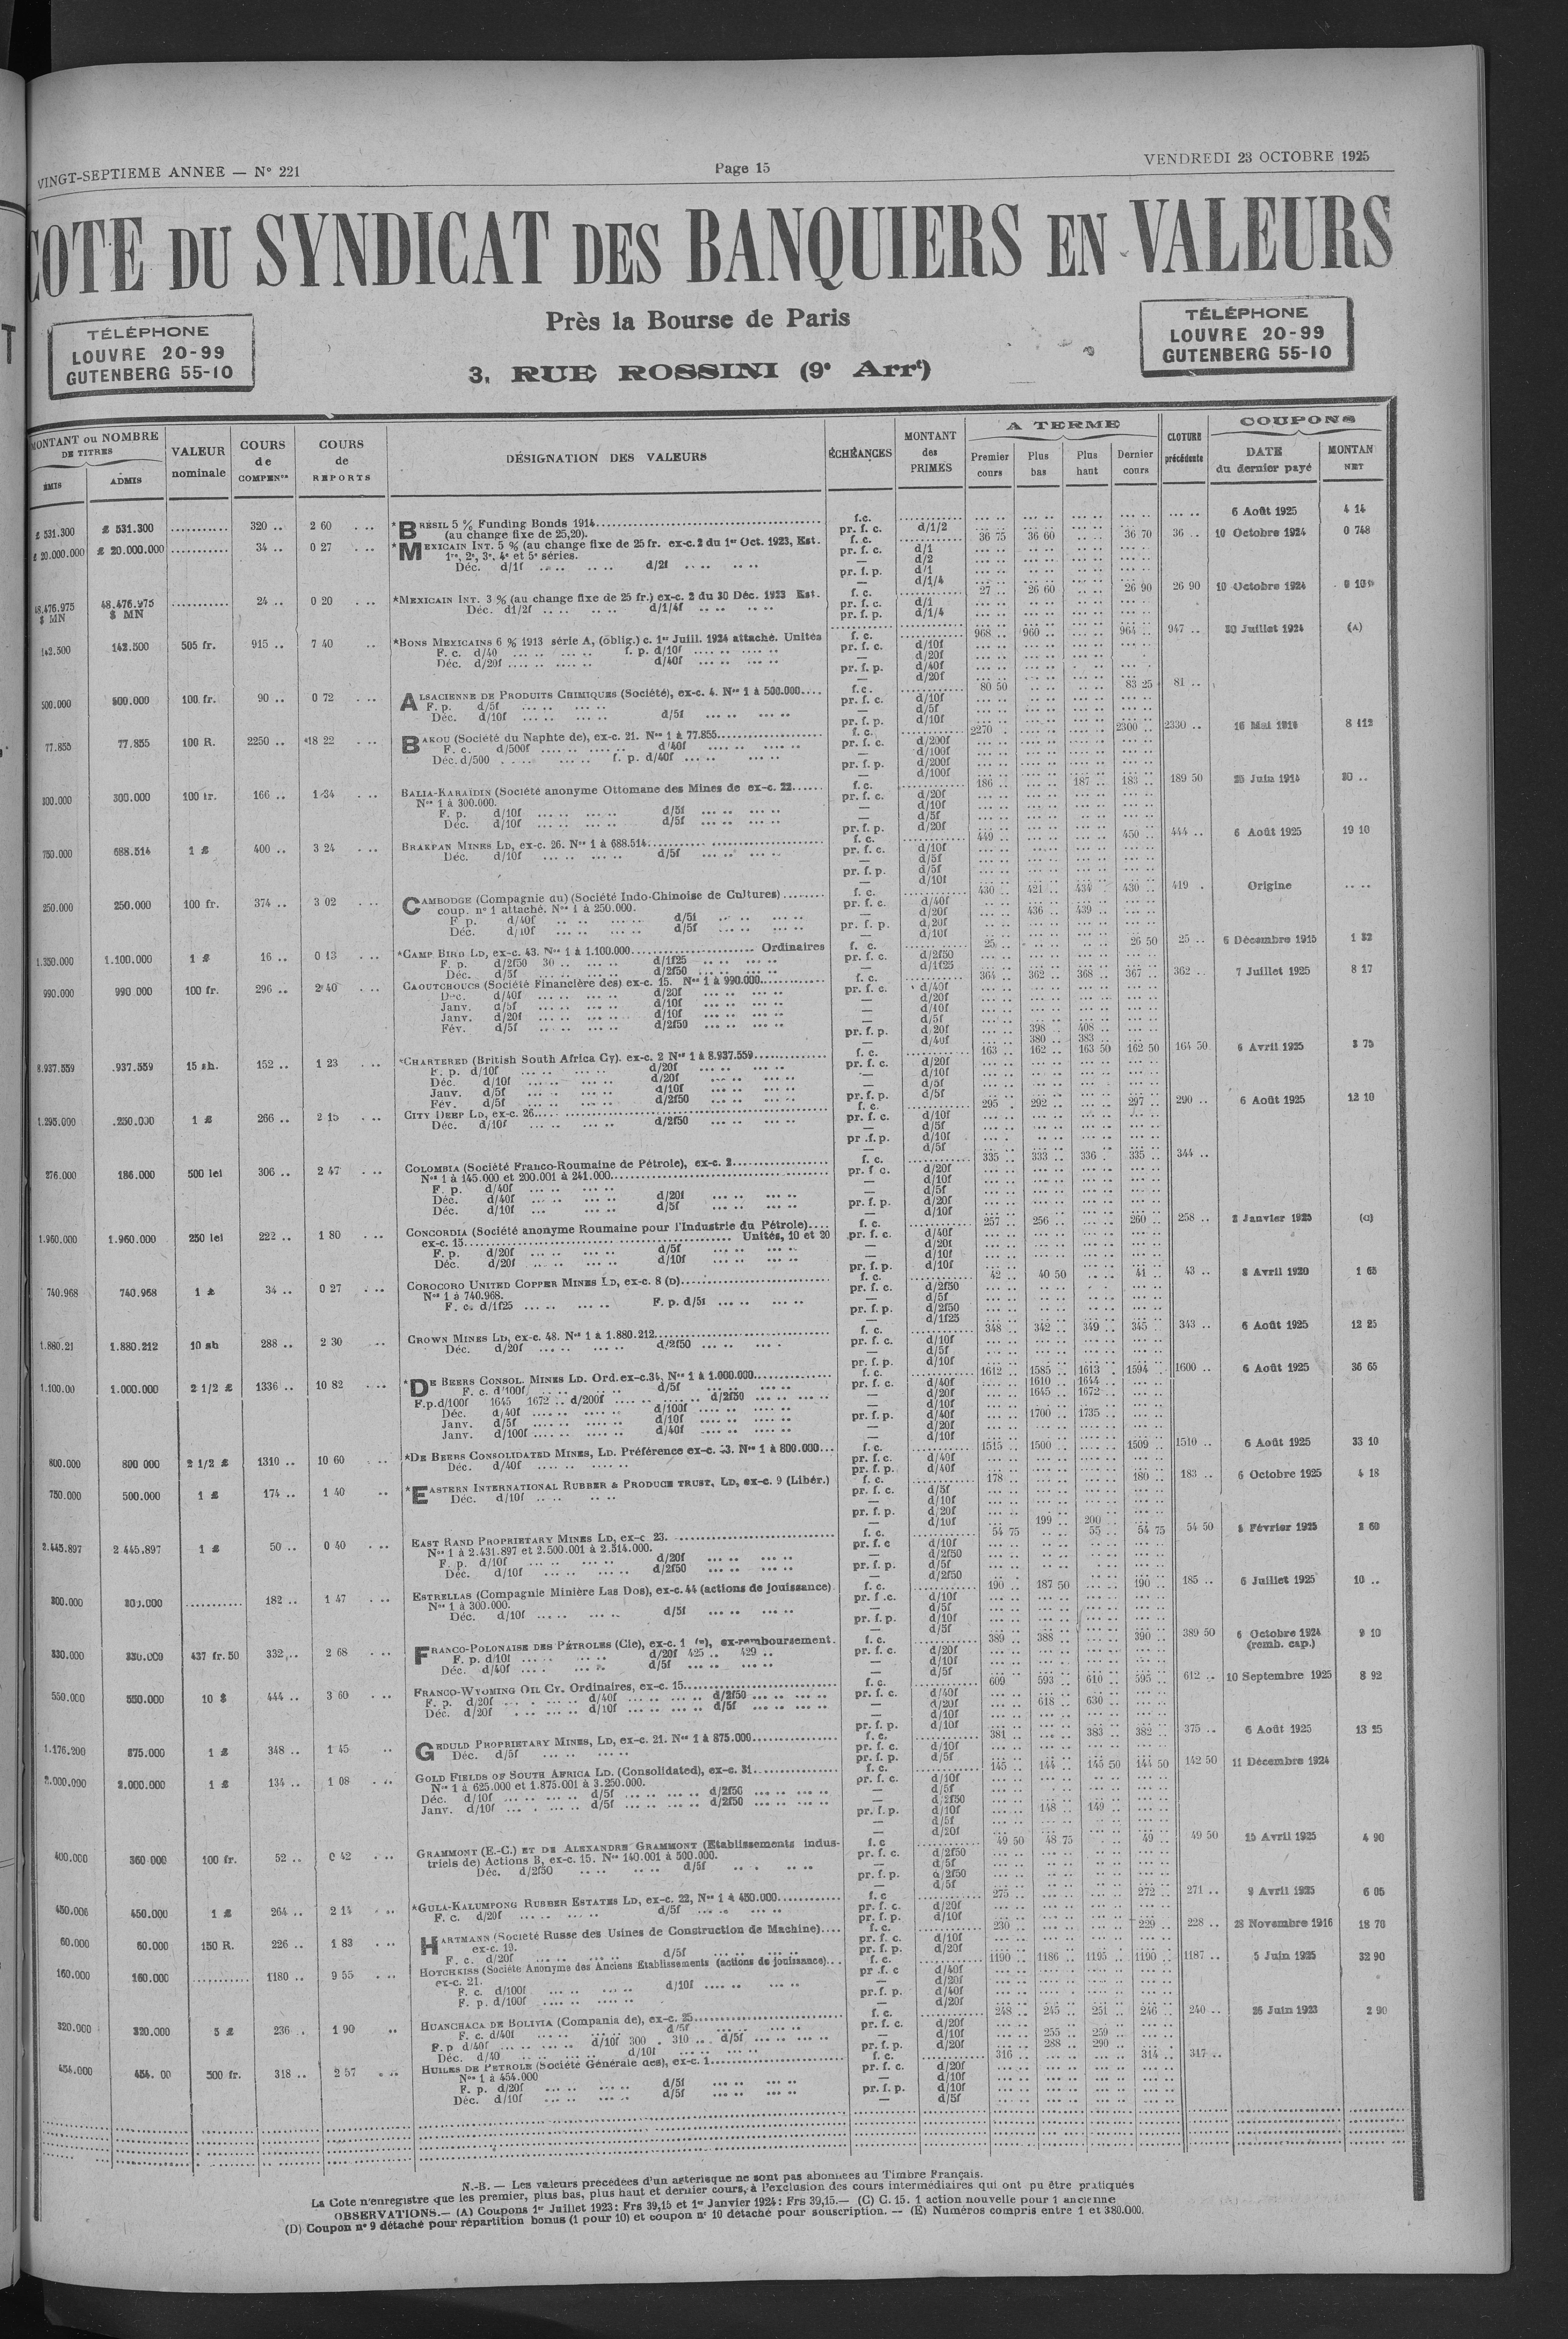 VINGT-SEPTIEME ANNEE — N° 221
Page 15
VENDREDI 23 OCTOBRE 1925
COTE DU SYNDICAT DES BANQUIERS EN VALEURS
TÉLÉPHONE
LOUVRE 20-99
GUTENBERG 55-10
Près la Bourse de Paris
3, RUE ROSSINI (9e Arrt)
TÉLÉPHONE
LOUVRE 20-99
GUTENBERG 55-10
MONTANT ou NOMBRE DE TITRES
ÉMIS
ADMIS
VALEUR nominale
COURS de COMPENon
COURS de REPORTS
DÉSIGNATION DES VALEURS
ÉCHÉANCES
MONTANT des PRIMES
A TERME
Premier cours
Plus bas
Plus haut
Dernier cours
CLOTURE précédente
COUPONS
DATE du dernier payé
MONTAN NET
£ 531.300 £ 531.300 ........... 320 .. 2 60 *BRÉSIL 5 % Funding Bonds 1914 f.c. 6 Août 1925 4 14
(au change fixe de 25,20). pr. f. c. d/1/2
£ 20.000.000 £ 20.000.000 ........... 34 .. 0 27 *MEXICAIN INT. 5 % (au change fixe de 25 fr. ex-c. 2 du 1er Oct. 1923, Est. f. c. 36 75 36 60 36 70 36 .. 10 Octobre 1924 0 748
1re, 2e, 3e, 4e et 5e séries. pr. f. c. d/1
Déc. d/1f d/2f
48.476.975 $ MN 48.476.975 $ MN ........... 24 .. 0 20 *MEXICAIN INT. 3 % (au change fixe de 25 fr.) ex-c. 2 du 30 Déc. 1923 Est. f. c. 27 .. 26 60 26 90 26 90 10 Octobre 1924
Déc. d1/2f d/1/4f pr. f. c. d/1
pr. f. p. d/1/4
142.500 142.500 505 fr. 915 .. 7 40 *BONS MEXICAINS 6 % 1913 série A, (oblig.) c. 1er Juill. 1924 attaché. Unités f. c. 968 .. 960 .. 964 .. 947 .. 30 Juillet 1924 (A)
F. c. d/40 f. p. d/10f pr. f. c. d/10f
Déc. d/20f d/40f
500.000 500.000 100 fr. 90 .. 0 72 ALSACIENNE DE PRODUITS CHIMIQUES (Société), ex-c. 4. Nos 1 à 500.000 f.c. 80 50 83 25 81 ..
F. p. d/5f
Déc. d/10f d/5f
77.855 77.855 100 R. 2250 .. 18 22 BAKOU (Société du Naphte de), ex-c. 21. Nos 1 à 77.855 f. c. 2270 2300 2330 .. 16 Mai 1914 8 112
F. c. d/500f d/40f
Déc. d/500 f. p. d/40f
300.000 300.000 100 fr. 166 .. 1 34 BALIA-KARAÏDIN (Société anonyme Ottomane des Mines de ex-c. 22 f. c. 186 .. 187 .. 183 .. 189 50 25 Juin 1914 30 ..
Nos 1 à 300.000.
F. p. d/10f d/5f
Déc. d/10f d/5f
750.000 688.514 1 £ 400 .. 3 24 BRAKPAN MINES LD, ex-c. 26. Nos 1 à 688.514 f. c. 449 .. 450 .. 444 .. 6 Août 1925 19 10
Déc. d/10f d/5f
250.000 250.000 100 fr. 374 .. 3 02 CAMBODGE (Compagnie du) (Société Indo-Chinoise de Cultures) f. c. 430 .. 421 .. 434 430 .. 419 . Origine
coup. n° 1 attaché. Nos 1 à 250.000. 436 .. 439 ..
F. p. d/40f d/5f
Déc. d/10f d/5f
1.350.000 1.100.000 1 £ 16 .. 0 13 *CAMP BIRD LD, ex-c. 43. Nos 1 à 1.100.000 Ordinaires f. c. 25 26 50 25 .. 6 Décembre 1915 1 32
F. p. d/2f50 30 .. d/1f25
Déc. d/5f d/2f50
990.000 990 000 100 fr. 296 .. 2 40 CAOUTCHOUCS (Société Financière des) ex-c. 15. Nos 1 à 990.000 f. c. 364 .. 362 .. 368 .. 367 .. 362 .. 7 Juillet 1925 8 17
Déc. d/40f d/20f
Janv. d/5f d/10f
Janv. d/20f d/10f
Fév. d/5f d/2f50
pr. f. p. d/20f 398 .. 408 ..
d/40f 380 .. 383 ..
8.937.559 .937.559 15 sh. 152 .. 1 23 *CHARTERED (British South Africa Cy). ex-c. 2 Nos 1 à 8.937.559 f. c. 163 .. 162 .. 163 50 162 50 164 50 6 Avril 1925 3 75
F. p. d/10f d/20f
Déc. d/10f d/20f
Janv. d/5f d/10f
Fév. d/5f d/2f50
1.295.000 .250.000 1 £ 266 .. 2 15 CITY DEEP LD, ex-c. 26 f. c. 295 . 292 .. 297 .. 290 .. 6 Août 1925 12 10
Déc. d/10f d/2f50
276.000 186.000 500 lei 306 .. 2 47 COLOMBIA (Société Franco-Roumaine de Pétrole), ex-c. 2 f. c. 335 .. 333 .. 336 . 335 .. 344 ..
Nos 1 à 145.000 et 200.001 à 241.000
F. p. d/40f
Déc. d/40f d/20f
Déc. d/10f d/5f
1.960.000 1.960.000 250 lei 222 .. 1 80 CONCORDIA (Société anonyme Roumaine pour l'Industrie du Pétrole) f. c. 257 .. 256 .. 260 .. 258 .. 2 Janvier 1925
ex-c. 15 Unités, 10 et 20 pr. f. c.
F. p. d/20f d/5f
Déc. d/20f d/10f
740.968 740.968 1 £ 34 .. 0 27 COROCORO UNITED COPPER MINES LD, ex-c. 8 (D) f. c. 42 .. 40 50 41 .. 43 .. 8 Avril 1920 1 65
Nos 1 à 740.968.
F. c. d/1f25 F. p. d/5f
1.880.21 1.880.212 10 sh 288 .. 2 30 CROWN MINES LD, ex-c. 48. Nos 1 à 1.880.212 f. c. 348 .. 342 .. 349 .. 345 .. 343 .. 6 Août 1925 12 25
Déc. d/20f d/2f50
1.100.00 1.000.000 2 1/2 £ 1336 .. 10 82 *DE BEERS CONSOL. MINES LD. Ord. ex-c. 34, Nos 1 à 1.000.000 f. c. 1612 .. 1585 .. 1613 . 1594 . 1600 .. 6 Août 1925 36 65
F. c. d/100f d/5f pr. f. c. d/40f 1610 .. 1644 ..
F.p.d/100f 1645 1672 .. d/200f d/2f50 d/20f 1645 .. 1672 ..
Déc. d/40f d/100f pr. f. p. d/40f 1700 .. 1735 ..
Janv. d/5f d/10f
Janv. d/100f d/40f
800.000 800 000 2 1/2 £ 1310 .. 10 60 *DE BEERS CONSOLIDATED MINES, LD. Préférence ex-c. 33. Nos 1 à 800.000 f. c. 1515 .. 1500 .. 1509 .. 1510 .. 6 Août 1925 33 10
Déc. d/40f
750.000 500.000 1 £ 174 .. 1 40 *EASTERN INTERNATIONAL RUBBER & PRODUCE TRUST, LD, ex-c. 9 (Libér.) f. c. 178 .. 180 .. 183 .. 6 Octobre 1925 4 18
Déc. d/10f
d/10f 199 .. 200 ..
2.445.897 2 445.897 1 £ 50 .. 0 40 EAST RAND PROPRIETARY MINES LD, ex-c. 23. f. c. 54 75 55 .. 54 75 54 50 5 Février 1925 2 60
Nos 1 à 2.431.897 et 2.500.001 à 2.514.000.
F. p. d/10f d/20f
Déc. d/10f d/2f50
300.000 300.000 ........... 182 .. 1 47 ESTRELLAS (Compagnie Minière Las Dos), ex-c. 44 (actions de jouissance) f. c. 190 .. 187 50 190 .. 185 .. 6 Juillet 1925 10 ..
Nos 1 à 300.000.
Déc. d/10f d/5f
330.000 330.000 437 fr. 50 332 .. 2 68 FRANCO-POLONAISE DES PÉTROLES (Cie), ex-c. 1 (E), ex-remboursement. f. c. 389 .. 388 .. 390 .. 389 50 6 Octobre 1924 9 10
F. p. d/10f d/20f 425 .. 429 .. (remb. cap.)
Déc. d/40f d/5f
550.000 550.000 10 $ 444 .. 3 60 FRANCO-WYOMING OIL CY. Ordinaires, ex-c. 15 f. c. 609 593 .. 610 .. 595 .. 612 .. 10 Septembre 1925 8 92
F. p. d/20f d/40f d/2f50 618 .. 630 ..
Déc. d/20f d/10f d/5f
1.176.200 875.000 1 £ 348 .. 1 45 GEDULD PROPRIETARY MINES, LD, ex-c. 21. Nos 1 à 875.000 f. c. 381 .. 383 .. 382 .. 375 .. 6 Août 1925 13 25
Déc. d/5f
2.000.000 2.000.000 1 £ 134 .. 1 08 GOLD FIELDS OF SOUTH AFRICA LD. (Consolidated), ex-c. 31 f. c. 145 .. 144 .. 145 50 144 50 142 50 11 Décembre 1924
Nos 1 à 625.000 et 1.875.001 à 3.250.000.
Déc. d/10f d/5f d/2f50
Janv. d/10f d/5f d/2f50 pr. f. p. d/10f 148 .. 149 ..
400.000 360 000 100 fr. 52 .. 0 42 GRAMMONT (E.-C.) ET DE ALEXANDRE GRAMMONT (Etablissements indus- f. c 49 50 48 75 49 .. 49 50 15 Avril 1925 4 90
triels de) Actions B, ex-c. 15. Nos 140.001 à 500.000.
Déc. d/2f50 d/5f
450.000 450.000 1 £ 264 .. 2 14 *GULA-KALUMPONG RUBBER ESTATES LD, ex-c. 22, Nos 1 à 450.000 f. c 275 .. 272 .. 271 .. 9 Avril 1925 6 05
F. c. d/20f d/5f
60.000 60.000 150 R. 226 .. 1 83 HARTMANN (Société Russe des Usines de Construction de Machine) f. c. 230 229 .. 228 .. 28 Novembre 1916 18 70
ex-c. 19.
F. c. d/20f d/5f
160.000 160.000 ........... 1180 .. 9 55 HOTCHKISS (Société Anonyme des Anciens Etablissements (actions de jouissance) f. c. 1190 .. 1186 .. 1195 .. 1190 .. 1187 .. 5 Juin 1925 32 90
ex-c. 21.
F. c. d/100f d/10f
F. p. d/100f
320.000 320.000 5 £ 236 . 1 90 HUANCHACA DE BOLIVIA (Compania de), ex-c. 25 f. c. 248 .. 245 .. 251 .. 246 .. 240 .. 26 Juin 1923 2 90
F. c. d/40f d/5f d/10f 255 .. 259 ..
F. p d/40f d/10f 300 . 310 .. d/5f pr. f. p. d/20f 288 .. 290 ..
Déc. d/40 d/10f
454.000 454. 00 500 fr. 318 .. 2 57 HUILES DE PETROLE (Société Générale des), ex-c. 1 f. c. 316 .. 314 .. 317 ..
Nos 1 à 454.000
F. p. d/20f d/5f
Déc. d/10f d/5f
N.-B. — Les valeurs précédées d'un astérisque ne sont pas abonnées au Timbre Français.
La Cote n'enregistre que les premier, plus bas, plus haut et dernier cours, à l'exclusion des cours intermédiaires qui ont pu être pratiqués
OBSERVATIONS.— (A) Coupons 1er Juillet 1923: Frs 39,15 et 1er Janvier 1924: Frs 39,15.— (C) C. 15. 1 action nouvelle pour 1 ancienne
(D) Coupon n° 9 détaché pour répartition bonus (1 pour 10) et coupon n° 10 détaché pour souscription. — (E) Numéros compris entre 1 et 380.000.